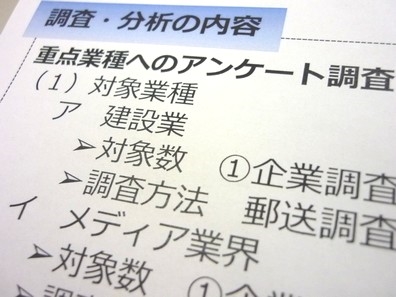 調査・分析の内容
重点業種へのアンケート調査
(1)対象業種
ア 建設業
➢対象数 ①企業調査
➢調査方法 郵送調査
イ メディア業界
➢対象数 ①企
➢調査